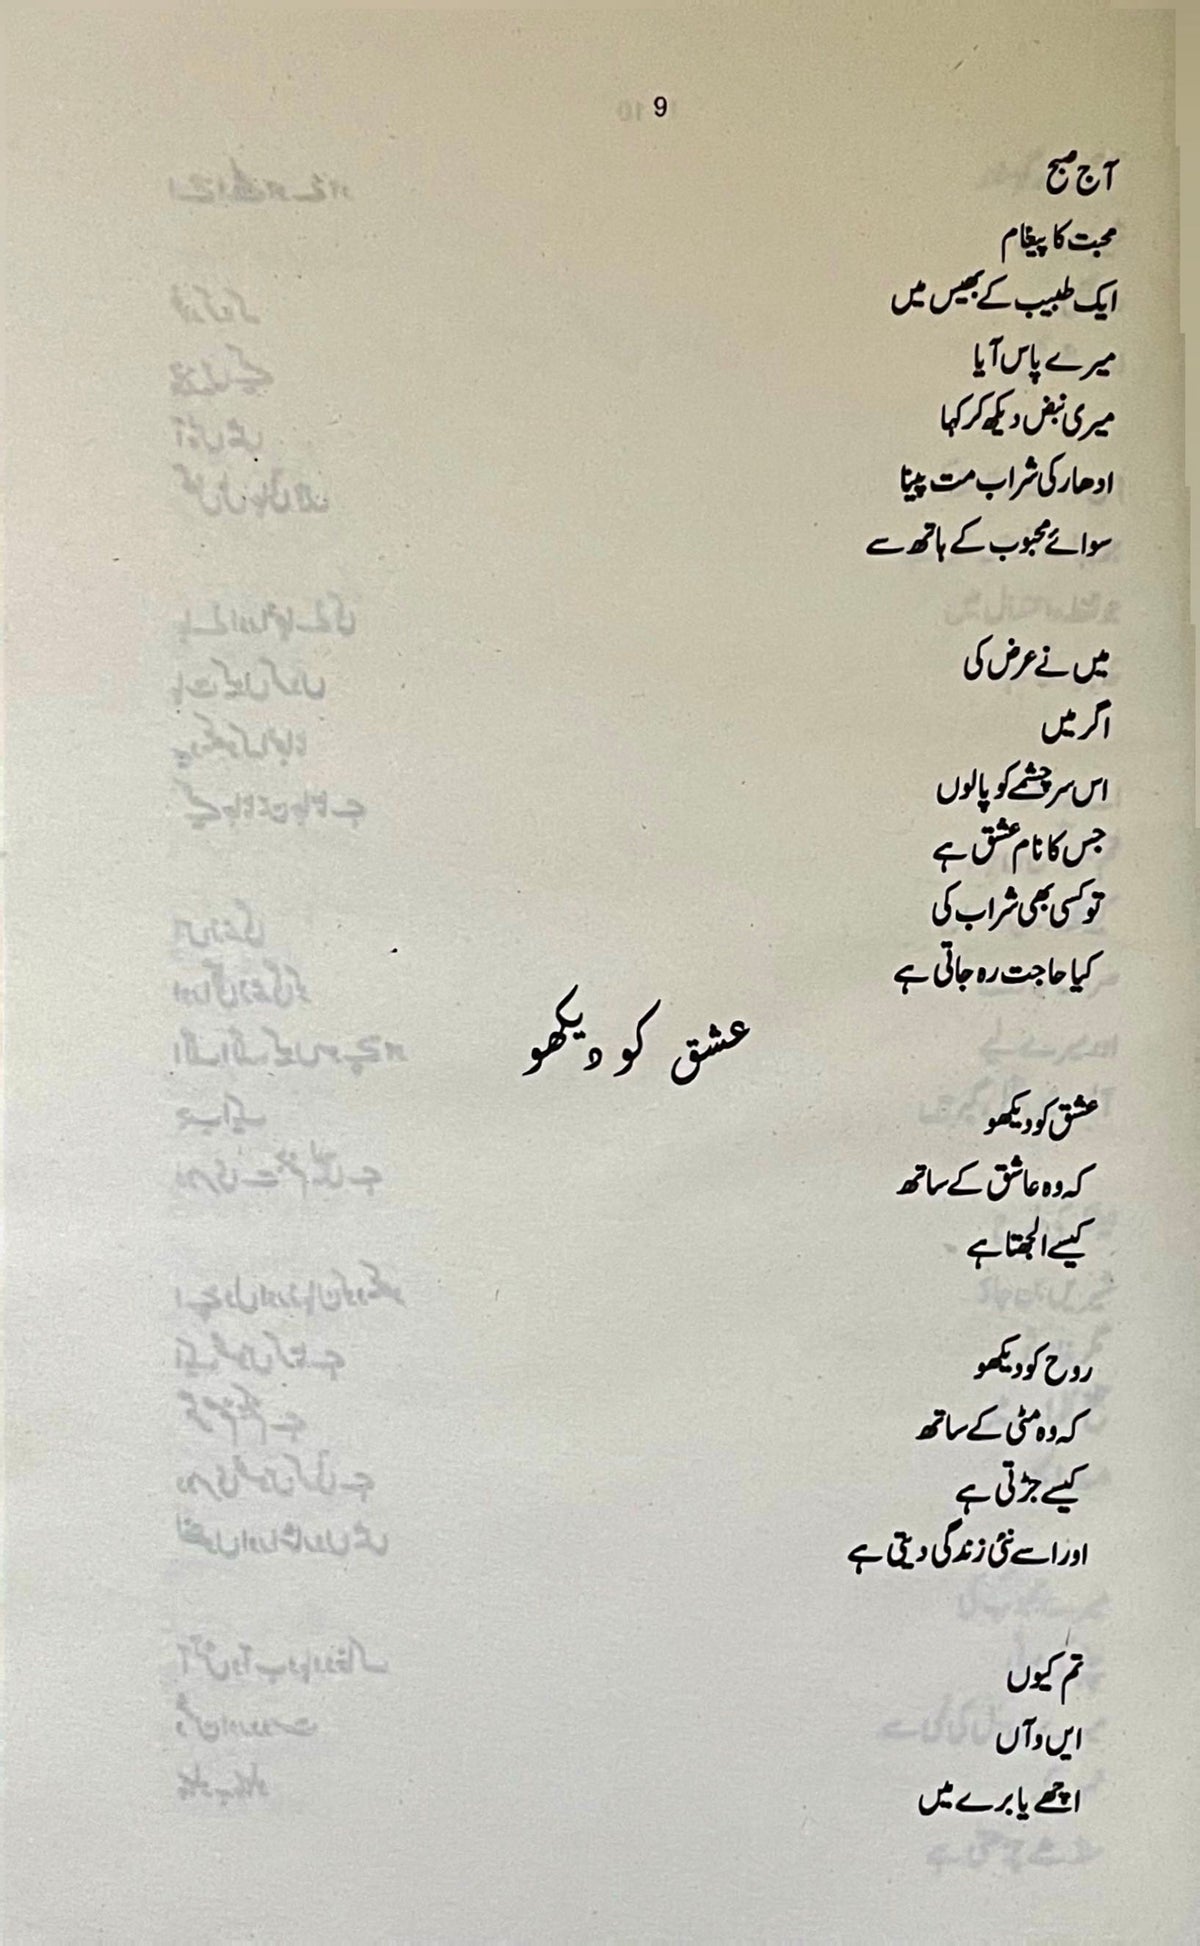 9
آج صبح
محبت کا پیغام
ایک طبیب کے بھیس میں
میرے پاس آیا
میری نبض دیکھ کر کہا
ادھار کی شراب مت پینا
سوائے محبوب کے ہاتھ سے
میں نے عرض کی
اگر میں
اس سرچشمے کو پالوں
جس کا نام عشق ہے
تو کسی بھی شراب کی
کیا حاجت رہ جاتی ہے
عشق کو دیکھو
عشق کو دیکھو
کہ وہ عاشق کے ساتھ
کیسے الجھتا ہے
روح کو دیکھو
کہ وہ مٹی کے ساتھ
کیسے جڑتی ہے
اور اسے نئی زندگی دیتی ہے
تم کیوں
ایں و آں
اچھے یا برے میں